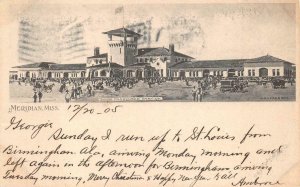 MERIDIAN, MISS. 12/30-05
Georgie
Sunday I run up to St. Louis from
Birmingham Ala, arriving Monday morning and
left again in the afternoon for Birmingham arriving
Tuesday morning, Merry Christmas & Happy New Year